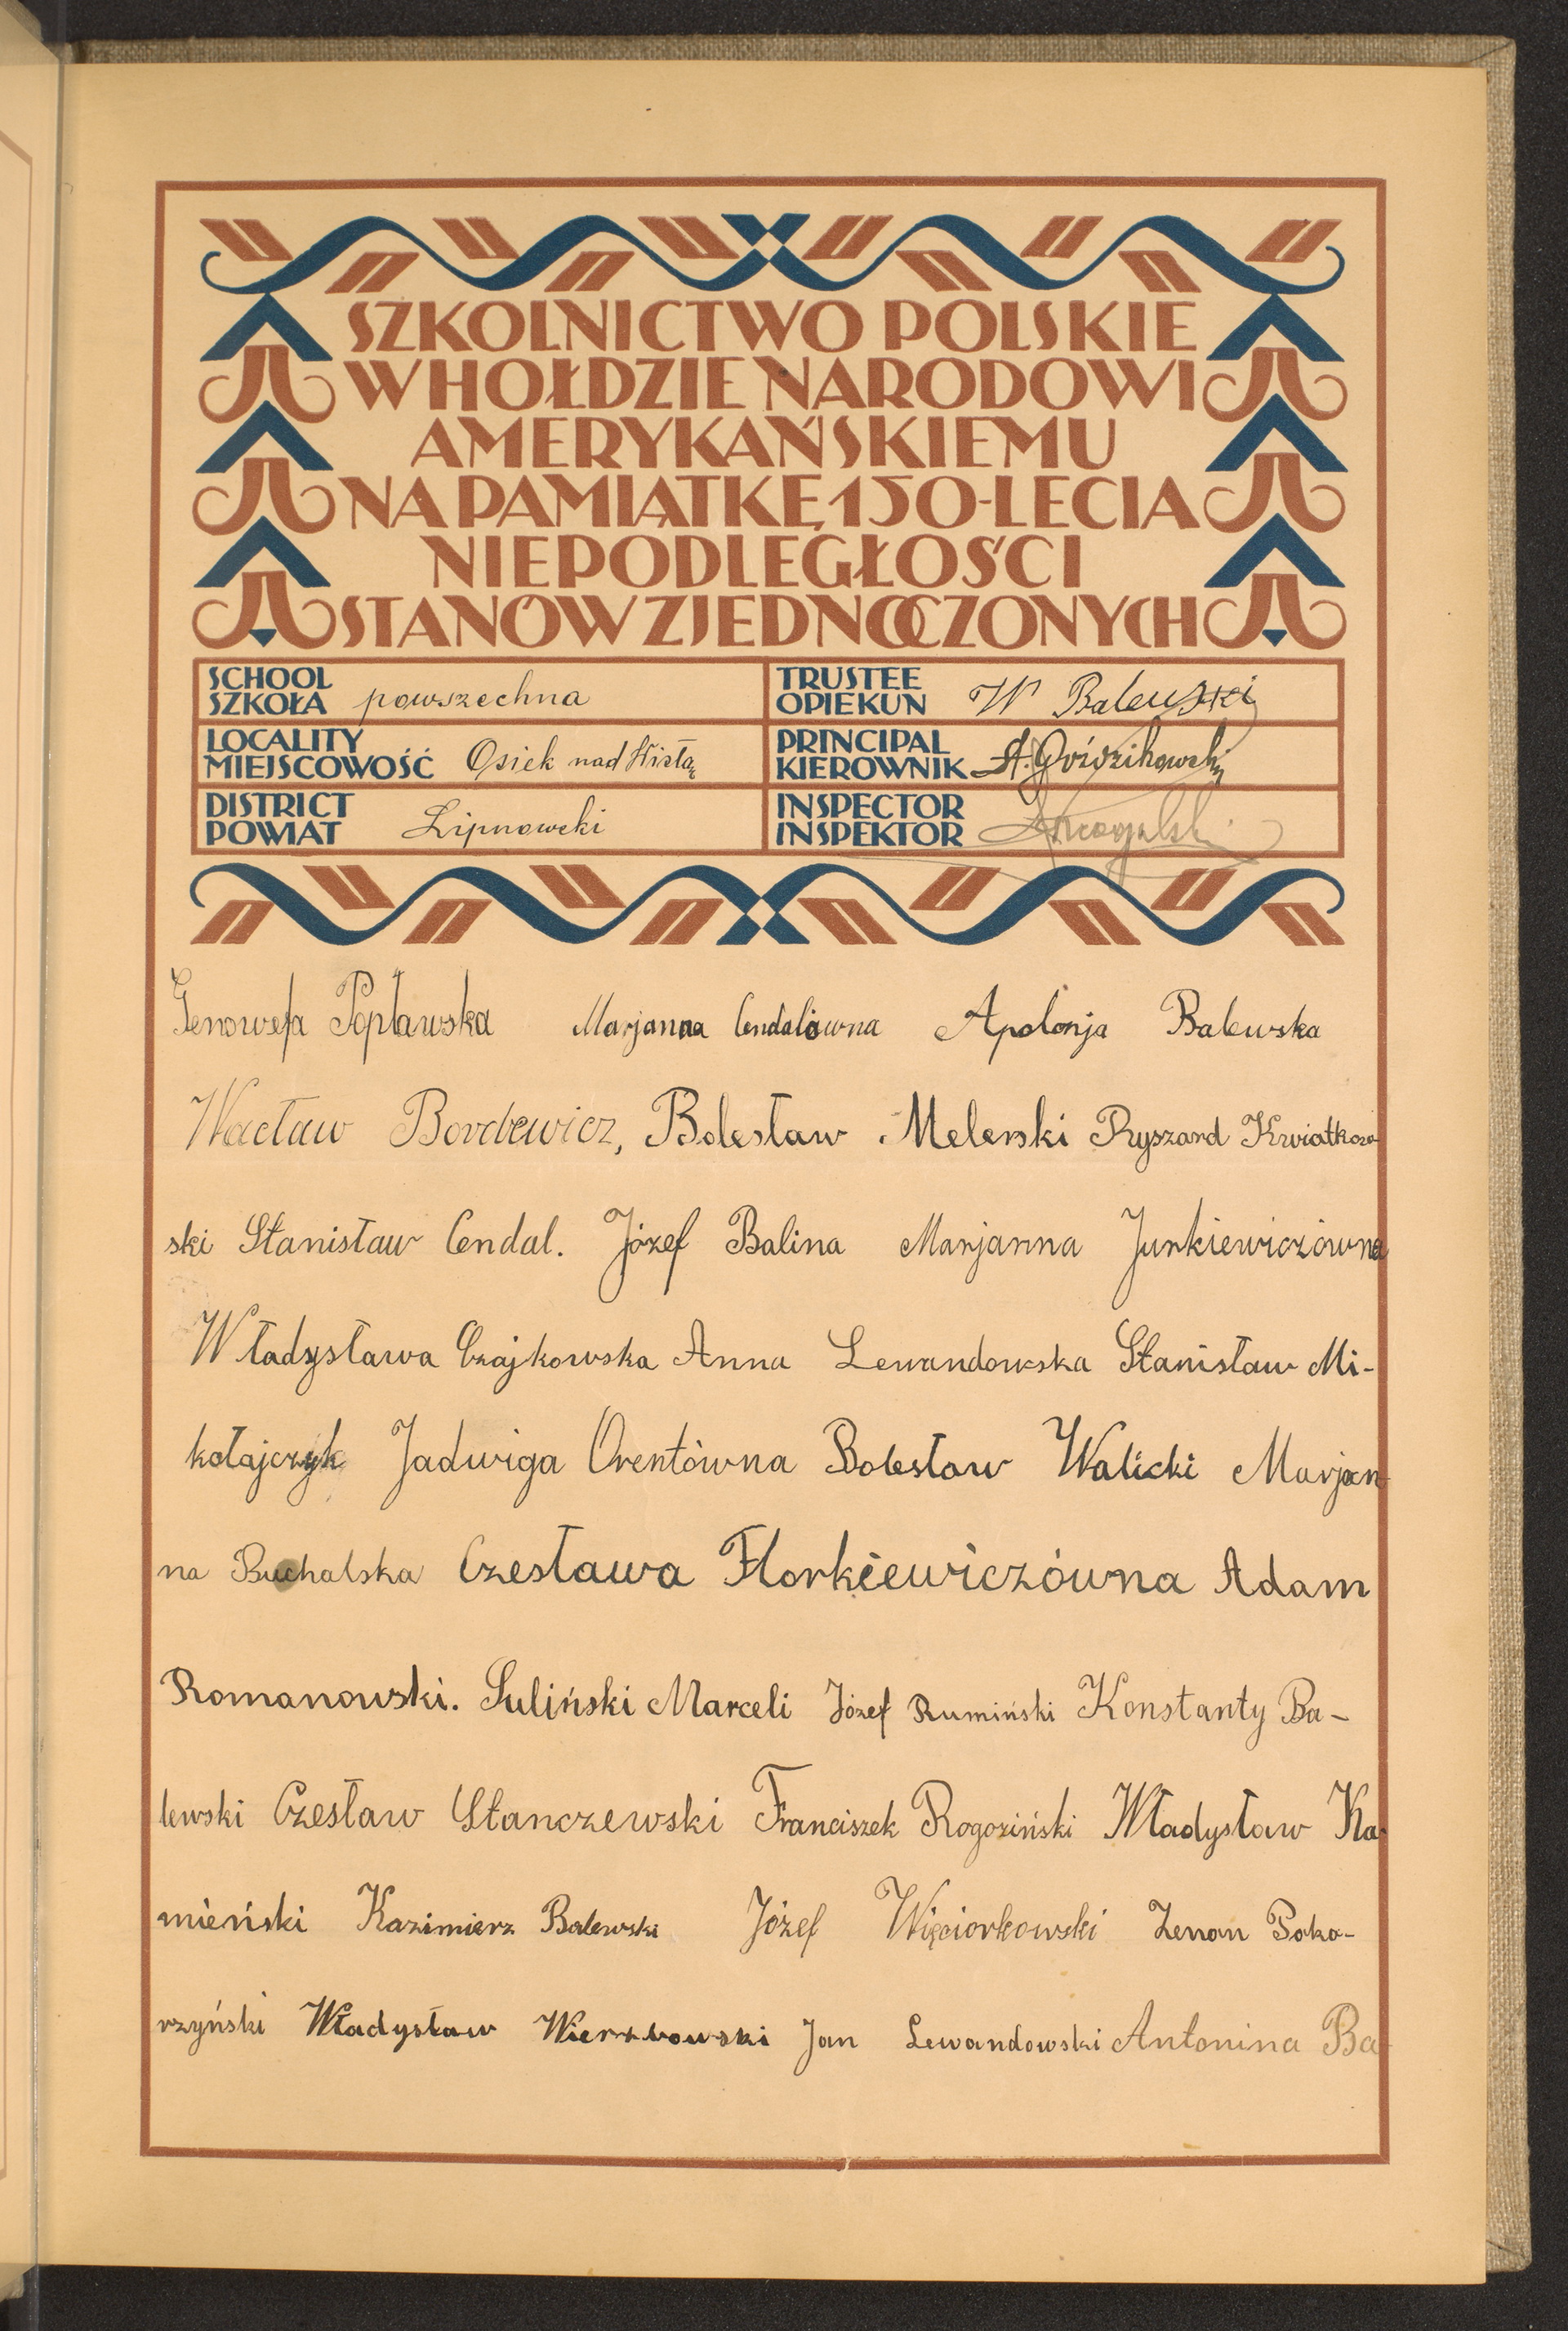 SZKOLNICTWO POLSKIE
W HOŁDZIE NARODOWI
AMERYKAŃSKIEMU
NA PAMIĄTKĘ 150-LECIA
NIEPODLEGŁOŚCI
STANÓW ZJEDNOCZONYCH
SCHOOL
SZKOŁA powszechna
TRUSTEE
OPIEKUN W Balewski
LOCALITY
MIEJSCOWOŚĆ Osiek nad Wisłą
PRINCIPAL
KIEROWNIK A. Goździkowski
DISTRICT
POWIAT Lipnowski
INSPECTOR
INSPEKTOR
Genowefa Popławska Marjanna Cendalówna Apolonja Balewska
Wacław Bordewicz, Bolesław Melerski Ryszard Kwiatkow
ski Stanisław Cendal. Józef Balina Marjanna Jurkiewiczówna
Władysława Czajkowska Anna Lewandowska Stanisław Mi-
kołajczyk Jadwiga Orentówna Bolesław Walicki Marjan
na Buchalska Czesława Florkiewiczówna Adam
Romanowski. Suliński Marceli Józef Rumiński Konstanty Ba-
lewski Czesław Stanczewski Franciszek Rogoziński Władysław Ka-
mieński Kazimierz Balewski Józef Więciorkowski Zenon Poko-
rzyński Władysław Wierzbowski Jan Lewandowski Antonina Ba